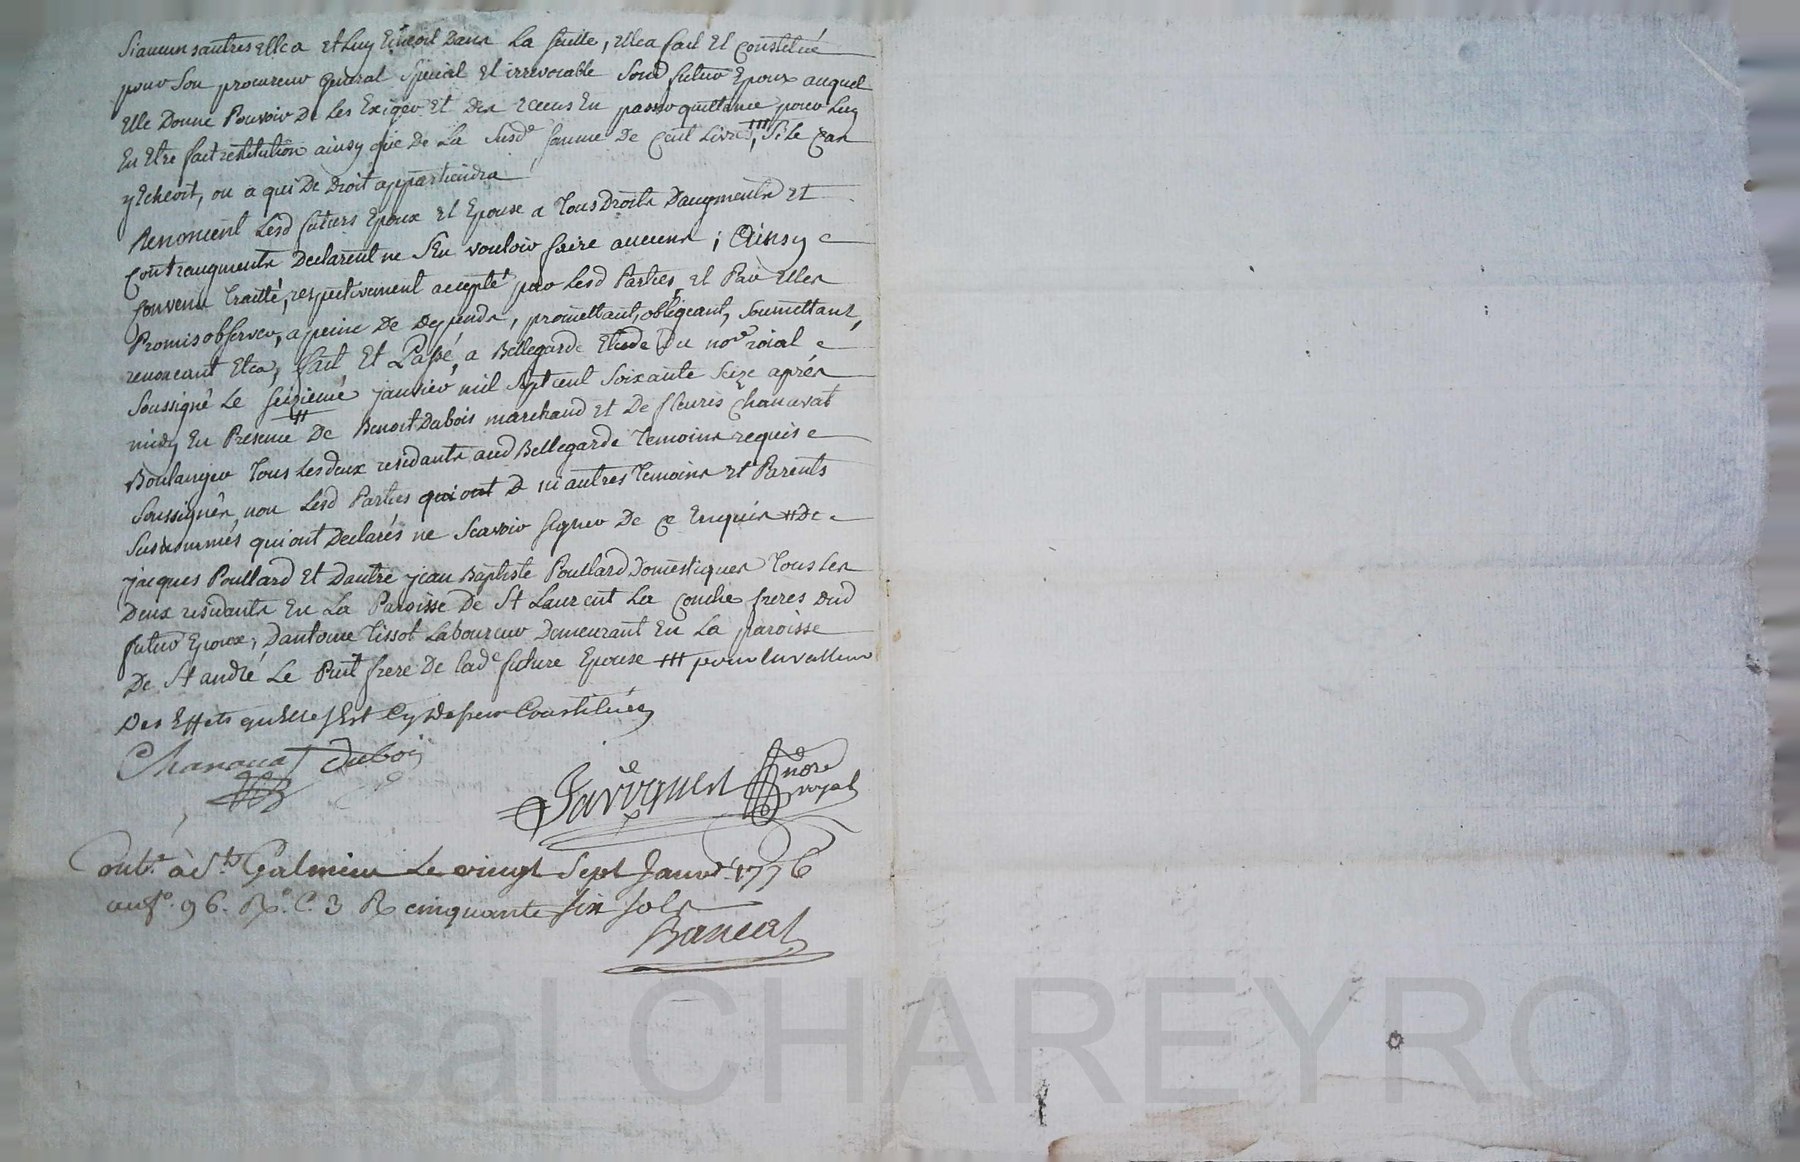 Si aucuns autres elle a et luy échoit dans la suitte, elle a fait et constitué
pour son procureur general special et irrevocable son d futur Epoux auquel
elle Donne Pouvoir De les Exiger et des recus En passer quittance pour luy
En Etre fait restitution ainsy que de la susde somme De Cent Livres, ### Si le Cas
y Echeoit, ou a qui De Droit appartiendra
Renoncent lesd futurs Epoux et Epouse a Tous Droits Daugments et
Contraugments Declarent ne S'En vouloir faire aucuns ; Ainsy
Convenu Traitté, respectivement accepté par lesd Parties, et Par Elles
Promis observer, a peine De Depends, promettant, obligeant, soumettant,
renoncant Etca, fait Et Passé, a Bellegarde Etude Du nore roial
Soussigné Le seizieme janvier mil Sept cent Soixante Seize aprés
midy En Presence # De Benoit Dubois marchand et De fleuris Chanavat
Boulanger Tous les deux residants aud Bellegarde Temoins requis
Soussignés, non lesd Parties qui ont D ni autres Temoins et Parents
Susnommés qui ont Declarés ne Scavoir signer De ce Enquis # De
jacques Poullard Et Dautre jean Baptiste Poullard Domestiques Tous les
Deux residants En La Paroisse De St Laurent La Conche freres dud
futur Epoux, Dantoine Tissot Laboureur Demeurant En La paroisse
De St andré Le Puit frere De lade future Epouse ### pour la valleur
Des Effets quelle s'Est Cy Dessus Constitués
Chanavat Dubois
nore
royal
Conté. à St. Galmier Le vingt Sept Janvr. 1776
au fo. 96. Ro. C. 3 R cinquante six sols